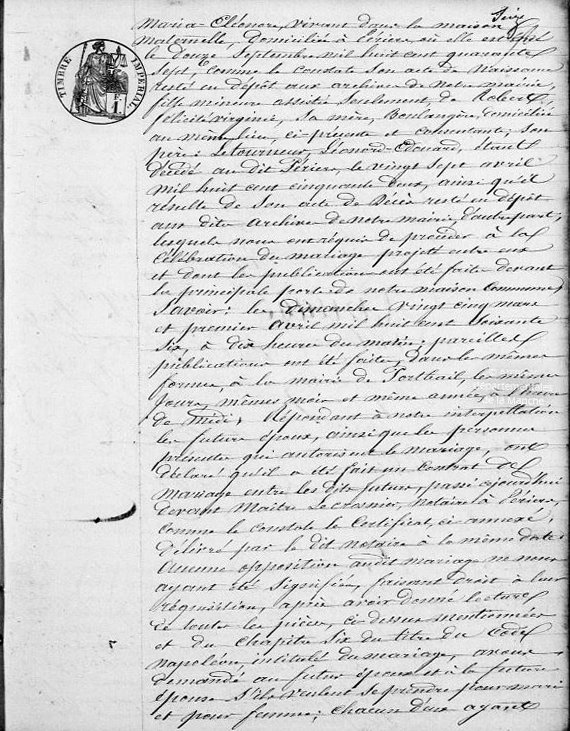 TIMBRE IMPÉRIAL
Maria-Eléonore, vivant dans la maison
maternelle, domiciliée à Périers, où elle est née
le douze Septembre mil huit cent quarante
sept, comme le constate son acte de naissance
resté en dépôt aux archives de notre mairie,
fille mineure assistée seulement, de Robert,
félicité virginie, sa mère, Boulangère, domiciliée
au même lieu, ci-présente et consentante; son
père: Letourneur, Léonord-Edouard, étant
décédé au dit Périers, le vingt sept avril
mil huit cent cinquante deux, ainsi qu'il
résulte de son acte de décès resté en dépôt
aux dites archives de notre mairie, d'autre part;
lesquels nous ont requis de procéder à la
Célébration du mariage projeté entre eux
et dont les publications ont été faites devant
la principale porte de notre maison Commune,
Savoir: les dimanches vingt cinq mars
et premier avril mil huit cent soixante
six, à dix heures du matin; pareilles
publications ont été faites, dans les mêmes
formes, à la mairie de Portbail, les mêmes
jours, mêmes mois et même année, à heure
de midi; Répondant à notre interpellation
les futurs époux, ainsi que les personnes
présentes qui autorisent le mariage, ont
déclaré qu'il a été fait un Contrat de
mariage entre les dits futurs, passé aujourd'hui
devant Maître Lecrosnier, notaire à Périers,
comme le constate le Certificat, ci-annexé,
délivré par le dit notaire à la même date.
Aucune opposition audit mariage ne nous
ayant été signifiée, faisant droit à leur
réquisition, après avoir donné lecture
de toutes les pièces, ci-dessus mentionnées
et du chapitre six du titre du Code
napoléon, intitulé du mariage, avons
demandé au futur époux et à la future
épouse s'ils veulent se prendre pour mari
et pour femme; chacun d'eux ayant